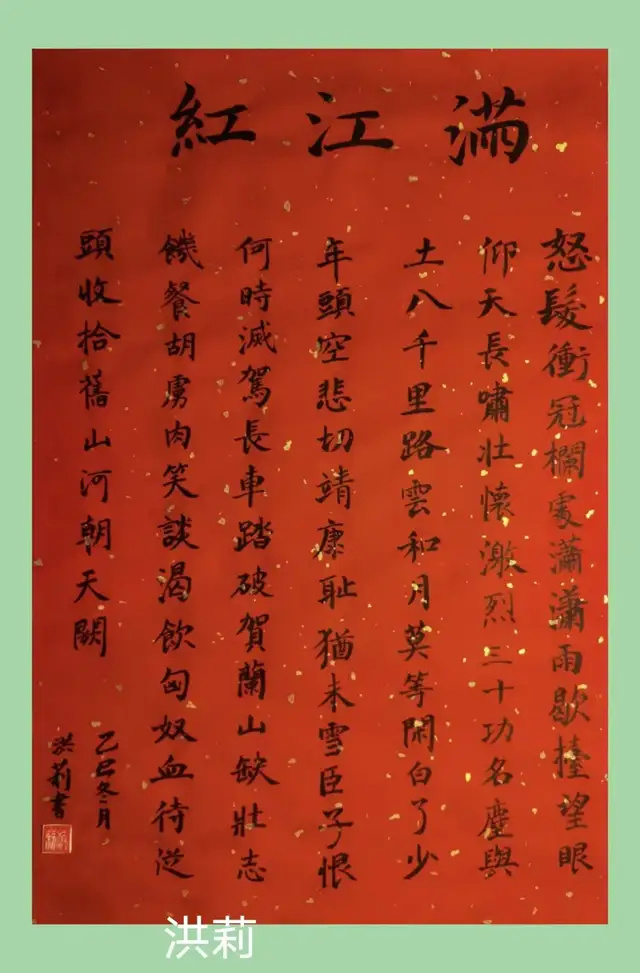 滿江紅
怒髮衝冠欄處瀟瀟雨歇擡望眼
仰天長嘯壯懷激烈三十功名塵與
土八千里路雲和月莫等閑白了少
年頭空悲切靖康耻猶未雪臣子恨
何時滅駕長車踏破賀蘭山缺壯志
饑餐胡虜肉笑談渴飲匈奴血待從
頭收拾舊山河朝天闕
乙巳冬月
洪莉書
洪莉